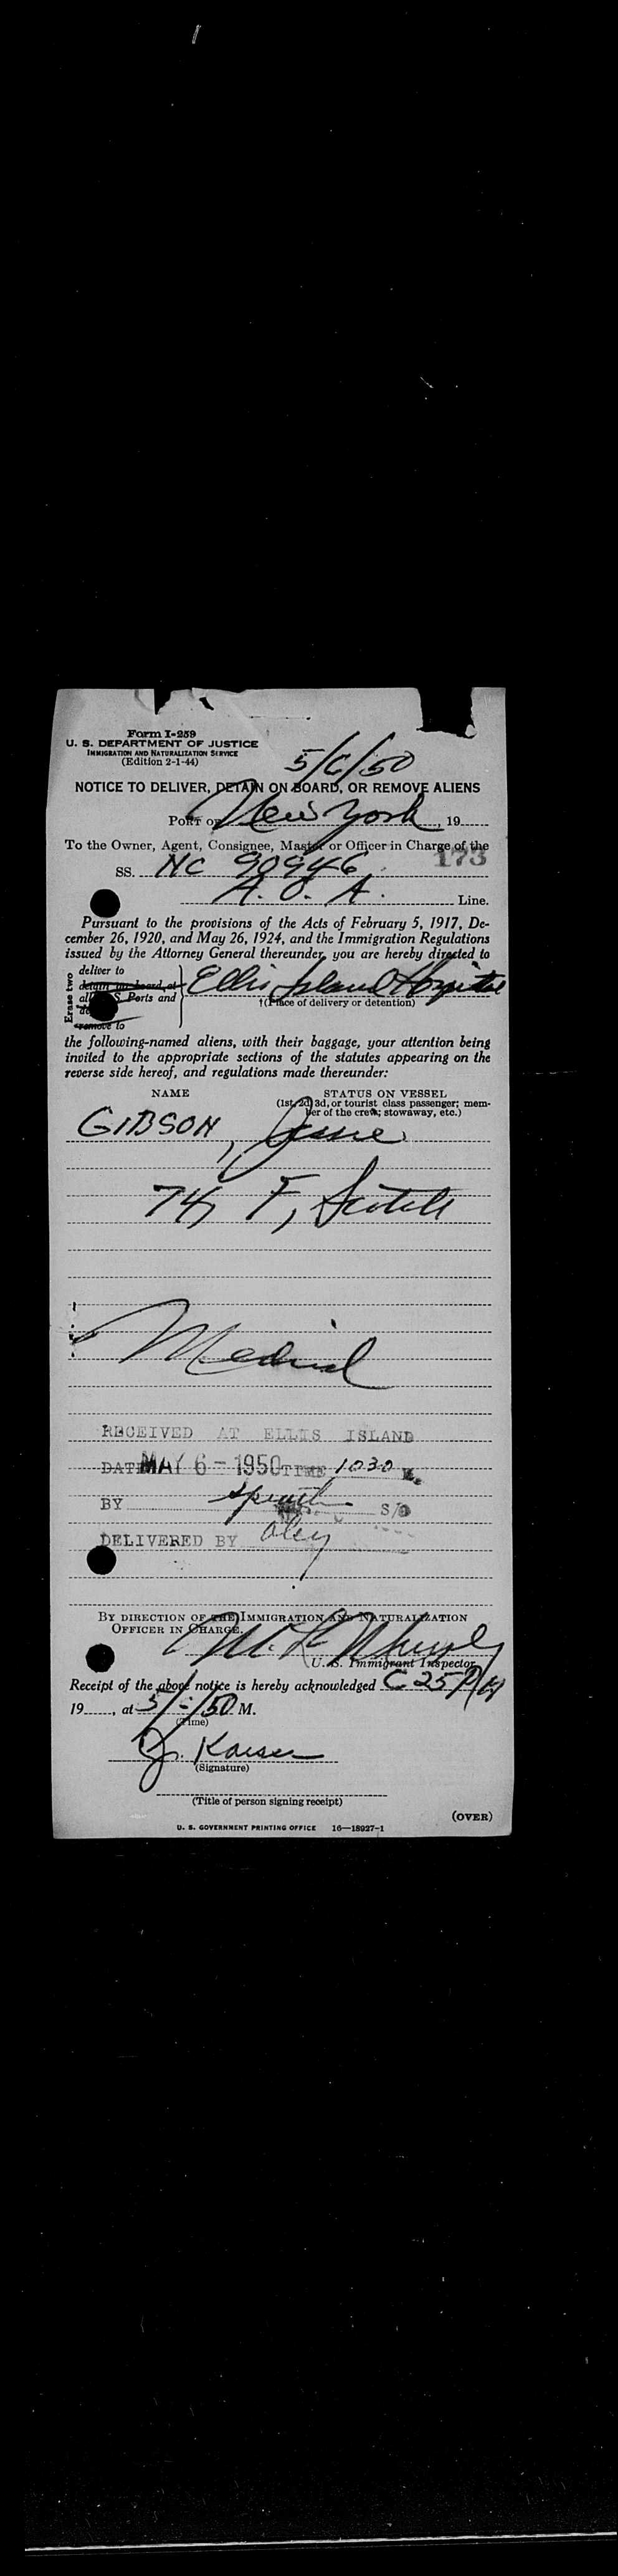 Form I-259
U. S. DEPARTMENT OF JUSTICE
IMMIGRATION AND NATURALIZATION SERVICE
(Edition 2-1-44)
5/6/50
NOTICE TO DELIVER, DETAIN ON BOARD, OR REMOVE ALIENS
PORT OF New York, 19
To the Owner, Agent, Consignee, Master or Officer in Charge of the
173
SS. NC 90946
A. O. A. Line.
Pursuant to the provisions of the Acts of February 5, 1917, De-
cember 26, 1920, and May 26, 1924, and the Immigration Regulations
issued by the Attorney General thereunder, you are hereby directed to
Erase two
deliver to
detain on board at
all U. S. Ports and
remove to
Ellis Island Hospital
†(Place of delivery or detention)
the following-named aliens, with their baggage, your attention being
invited to the appropriate sections of the statutes appearing on the
reverse side hereof, and regulations made thereunder:
NAME STATUS ON VESSEL
(1st, 2d, 3d, or tourist class passenger; mem-
ber of the crew; stowaway, etc.)
GIBSON, Jessie
74, F, Scotch
Medical
RECEIVED AT ELLIS ISLAND
DATE MAY 6 - 1950 TIME 1030
BY
DELIVERED BY
BY DIRECTION OF THE IMMIGRATION AND NATURALIZATION
OFFICER IN CHARGE.
U. S. Immigrant Inspector
Receipt of the above notice is hereby acknowledged
19, at 5/6/50 M.
(Time)
J. Kaiser
(Signature)
(Title of person signing receipt)
(OVER)
U. S. GOVERNMENT PRINTING OFFICE 16—18927-1